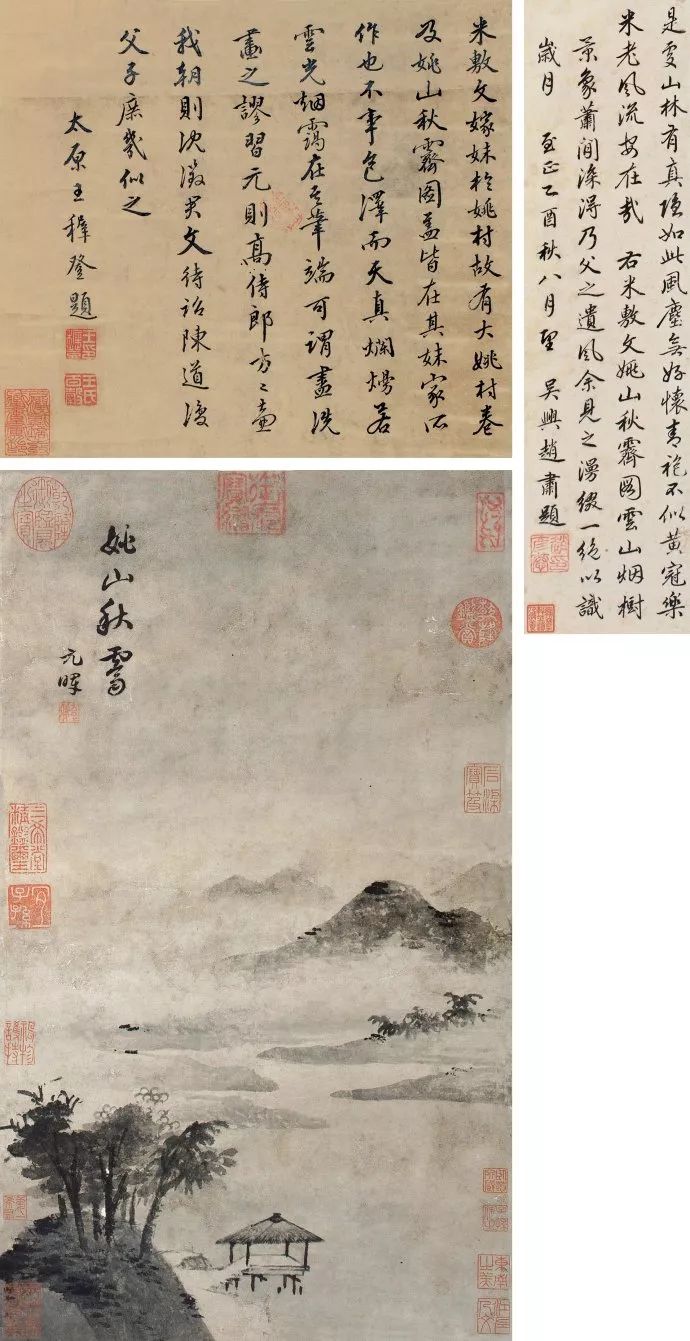 是處山林有真隱如此風塵無好懷青袍不似黃冠樂
米老風流安在哉 右米敷文姚山秋霽圖雲山烟樹
景象蕭閒深得乃父之遺風余見之漫綴一絕以識
歲月 至正乙酉秋八月望 吳興趙肅題
米敷文嫁妹於姚村故有大姚村卷
及姚山秋霽图蓋皆在其妹家所
作也不事色澤而天真爛熳若
雲光烟靄在其筆端可謂盡洗
畫之謬習元則高侍郎方〻壺
我朝則沈徵君文待詔陳道復
父子庶幾似之
太原王穉登題
姚山秋霽
元暉
石渠寶笈
三希堂精鑑璽
宜子孫